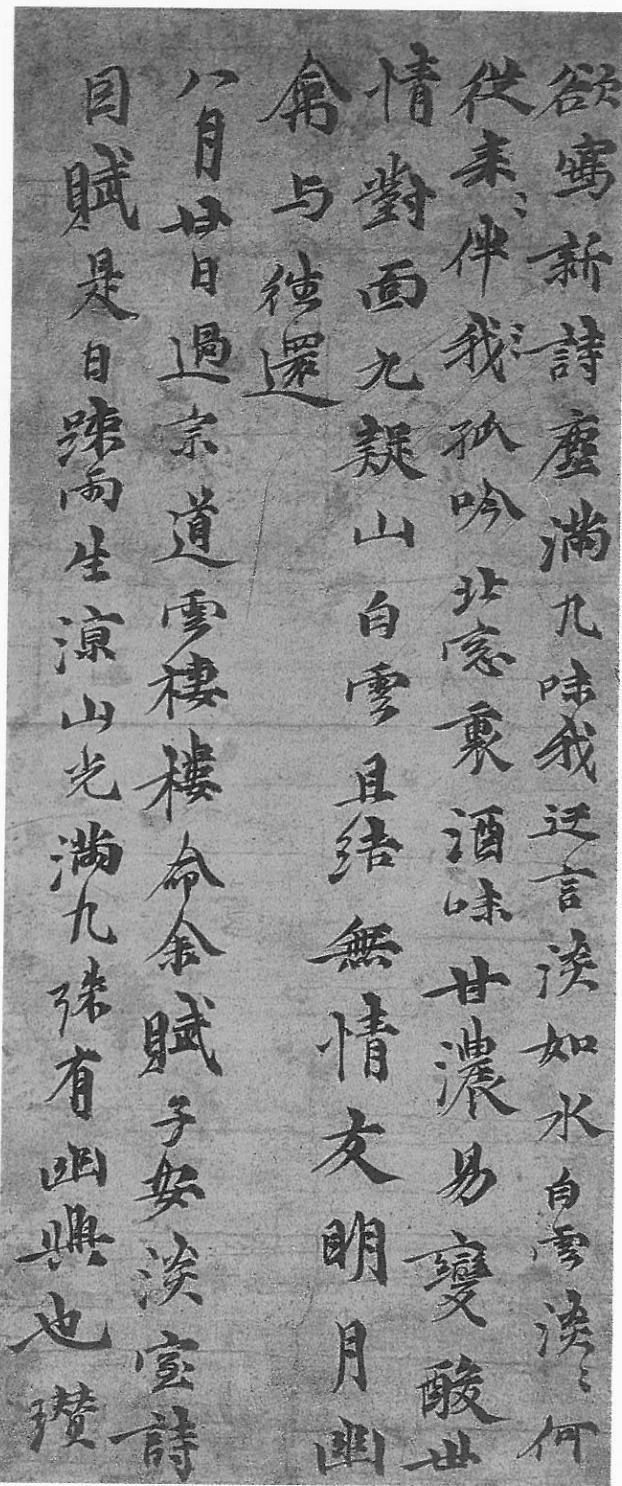 欲寫新詩塵滿几味我迂言淡如水白雲淡〻何
従来〻伴我孤吟北窓裏酒味甘濃易變酸世
情對面九疑山白雲且結無情友明月幽
禽与徃還
八月廿日過宗道雲樓樓命余賦子安淡室詩
因賦是日踈雨生涼山光滿几殊有幽興也瓚